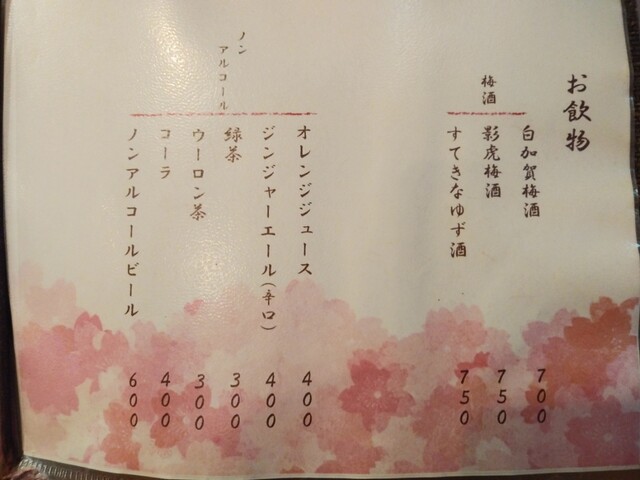 お飲物
梅酒
白加賀梅酒 700
影虎梅酒 750
すてきなゆず酒 750
ノンアルコール
オレンジジュース 400
ジンジャーエール(辛口) 400
緑茶 300
ウーロン茶 300
コーラ 400
ノンアルコールビール 600